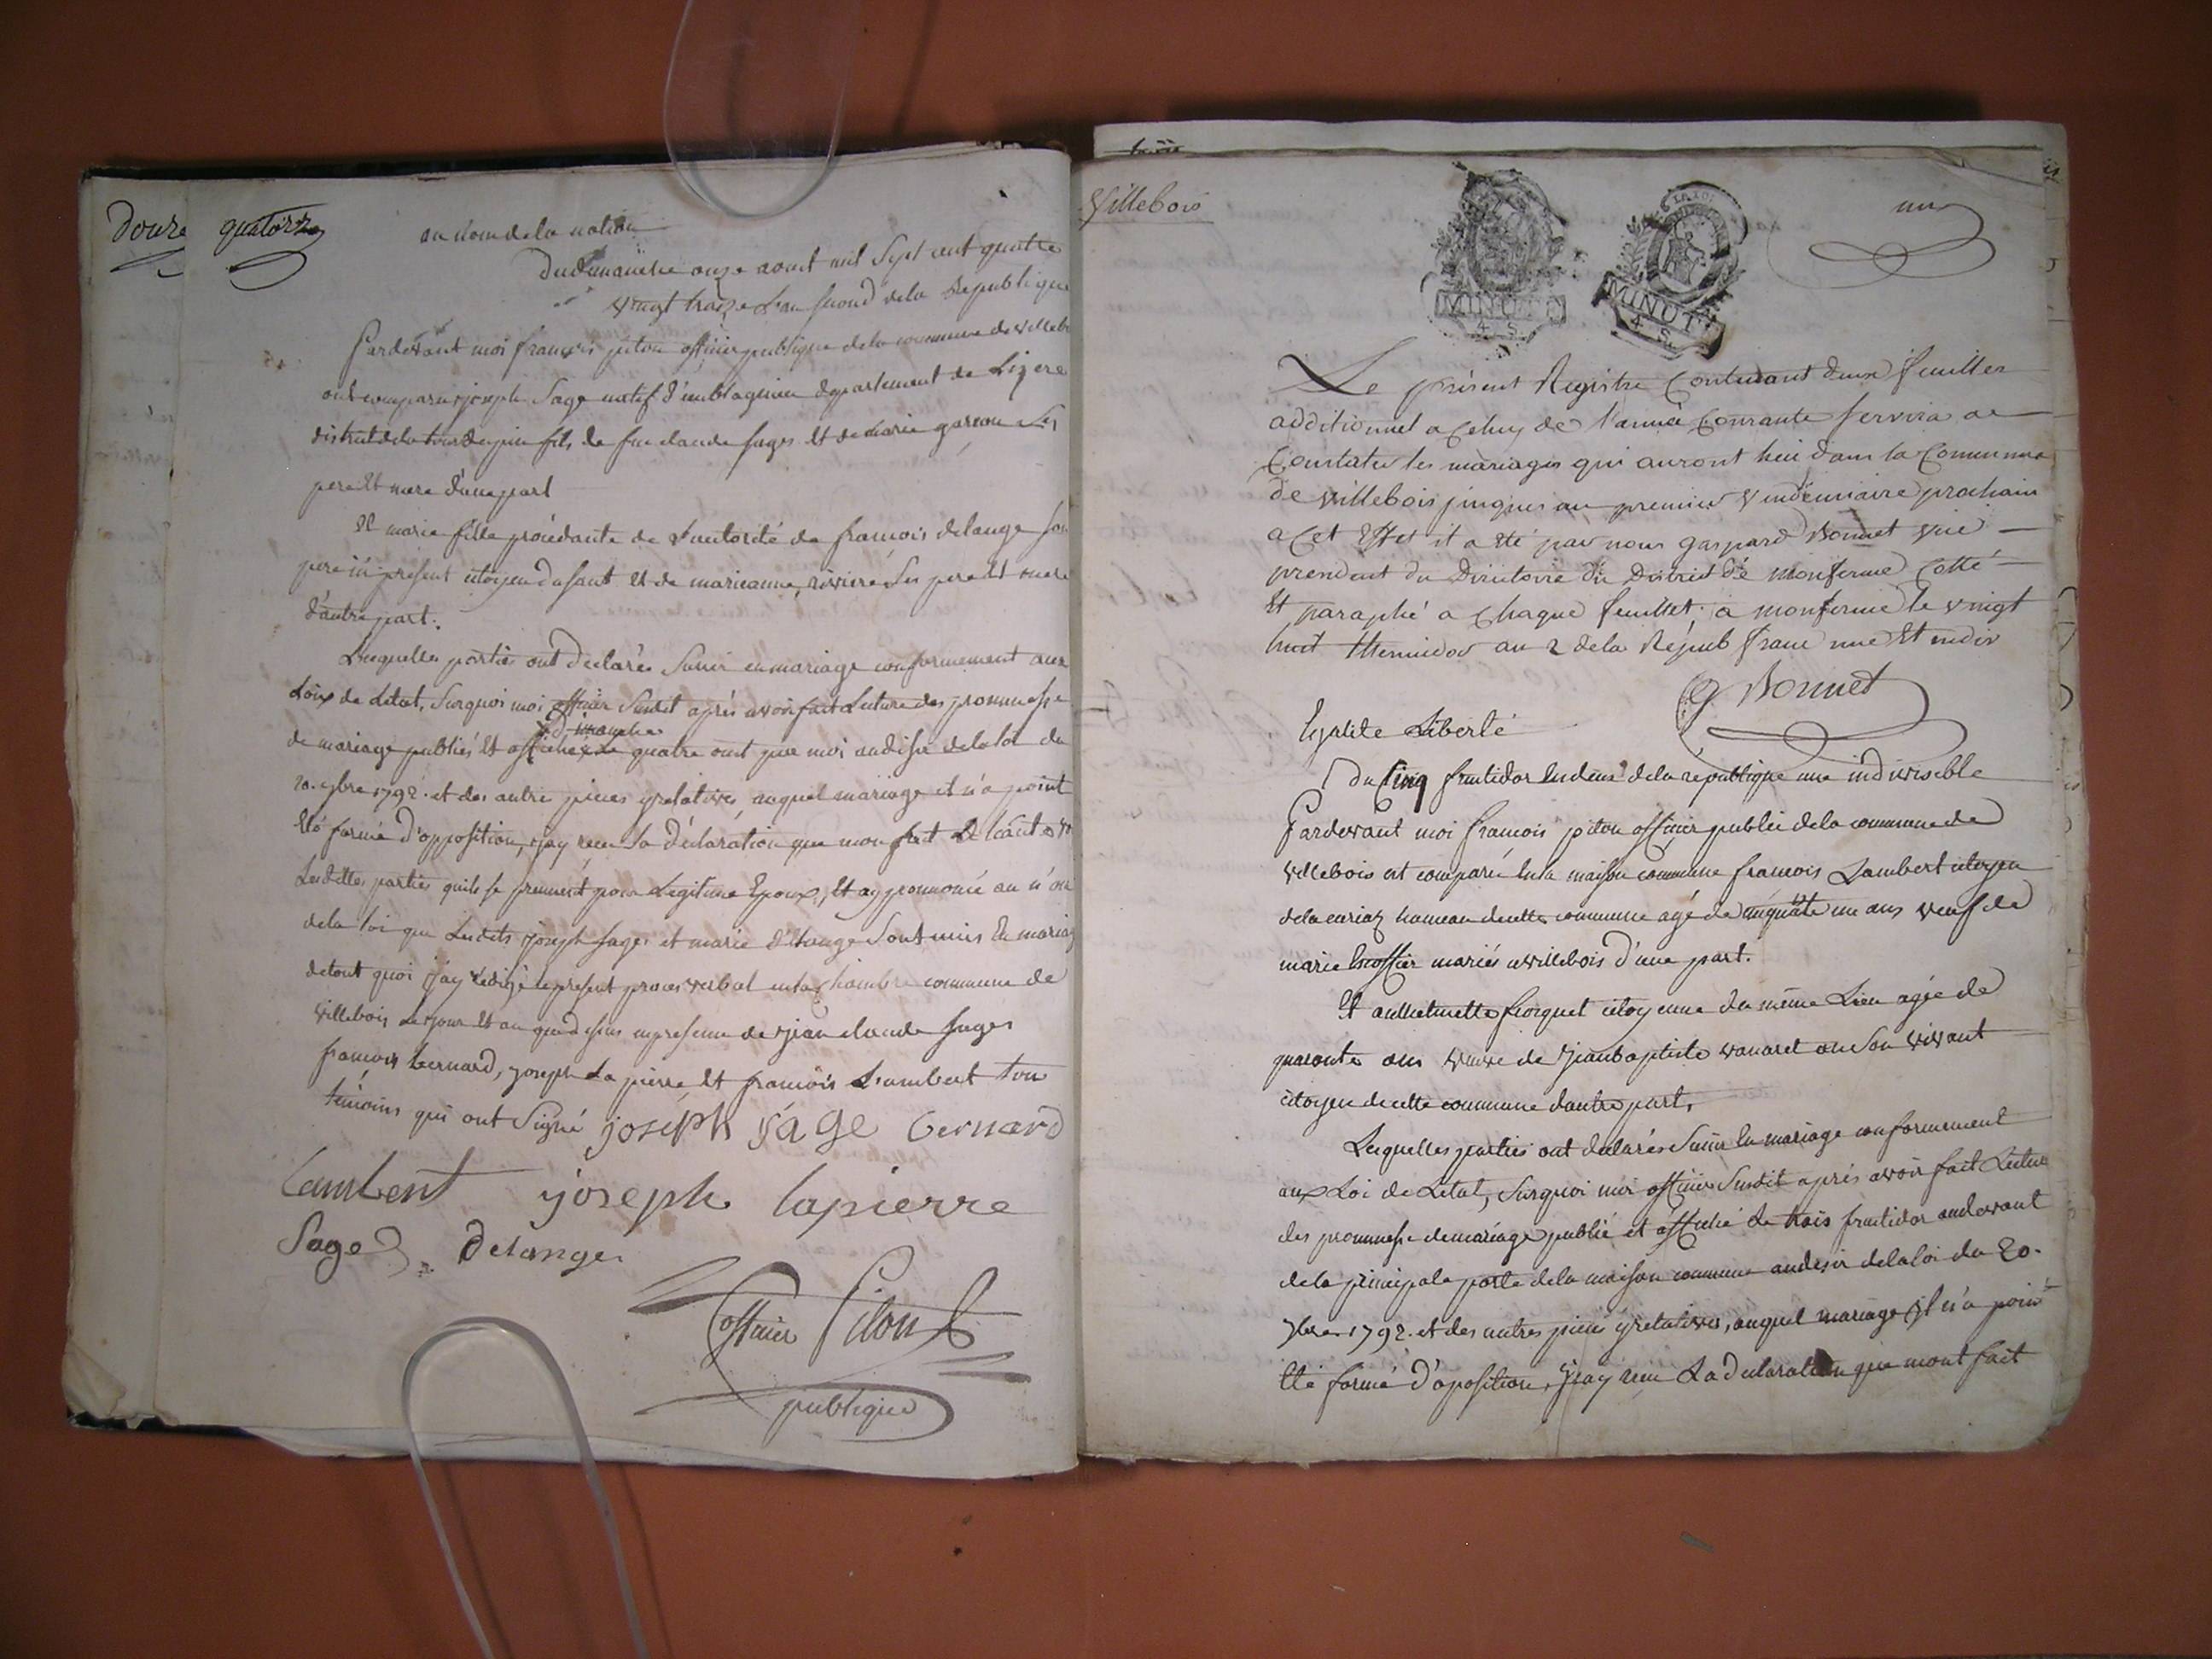 douze quatorze
au nom de la nation
Du dimanche onze aout mil Sept cent quatre
vingt traize L'an second de la Republique
Pardevant moi françois piton officier publique de la commune de villeb
ont comparu joseph Sage natif d' département de Lizere
district de la tour du pin fils de feu claude sages et de marie garcon Les
pere et mere d'une part
Et marie fille procédante de L'autorité de francois delange son
pere ici présent citoyen du sault et de marieanne riviere Les pere et mere
d'autre part.
Lesquelles parties ont declarés S'unir en mariage conformement aux
Loix de Letat, Surquoi moi officier Susdit après avoir fait Lecture des promesse
dimanche
de mariage publiés et affiché Le quatre out par moi au desir de la loi du
20. 7bre 1792. et des autre pieces y relatives, auquel mariage il n'a point
Eté formé d'opposition, j'ay reçu La déclaration que mon fait
Lesdittes parties quils se prennent pour Legitime Epoux, Et ay prononcé au nom
de la loi que Lesdits joseph sages et marie délange Sont unis En mariag
de tout quoi j'ay rédigé le present proces verbal en la chambre commune de
villebois Le jour et an que dessus en presence de jean claude sages
françois bernard, joseph La pierre et françois Lambert tou
témoins qui ont Signé joséph ságe bernard
Lambert joseph lapierre
Sage delange
officier Piton
publique
Villebois
un
LA LOI
MINUTE
4 S.
MINUTE
4 S.
Le présent Registre Contenant deux feuilles
additionnel a Celuy de l'année Courante servira a
Constater les mariages qui auront lieu dans la Commune
de villebois jusques au premier Vendemiaire prochain
a Cet Effet il a été par nous gaspard Bonnet vice
president du Directoire du District de Montferme Cotté
Et paraphé a Chaque feuillet; a montferme le vingt
huit thermidor an 2 de la Répub franc une Et indiv
G Bonnet
Egalite Liberté
Du Cinq fructidor Lan deux de la republique une indiviseble
Pardevant moi francois piton officier public de la commune de
villebois est comparu En la maison commune francois Lambert citoyen
de la hameau de cette commune agé de cinquante un ans veuf de
marie Escoffier mariés a villebois d'une part.
Et anthelmette citoyenne du même Lieu agée de
quarante ans veuve de jean baptiste vanaret en Son vivant
citoyen de cette commune d'autre part.
Lesquelles parties ont déclarés S'unir En mariage conformement
aux Loi de Letat, Surquoi moi officier Susdit après avoir fait Lecture
des promesse de mariage publié et affiché Le trois fructidor au devant
de la principale porte de la maison commune au desir de la loi du 20.
7bre 1792. et des autres pieces y relatives, auquel mariage il n'a point
Eté formé d'oposition, j'ay reçu La declaration que mont fait